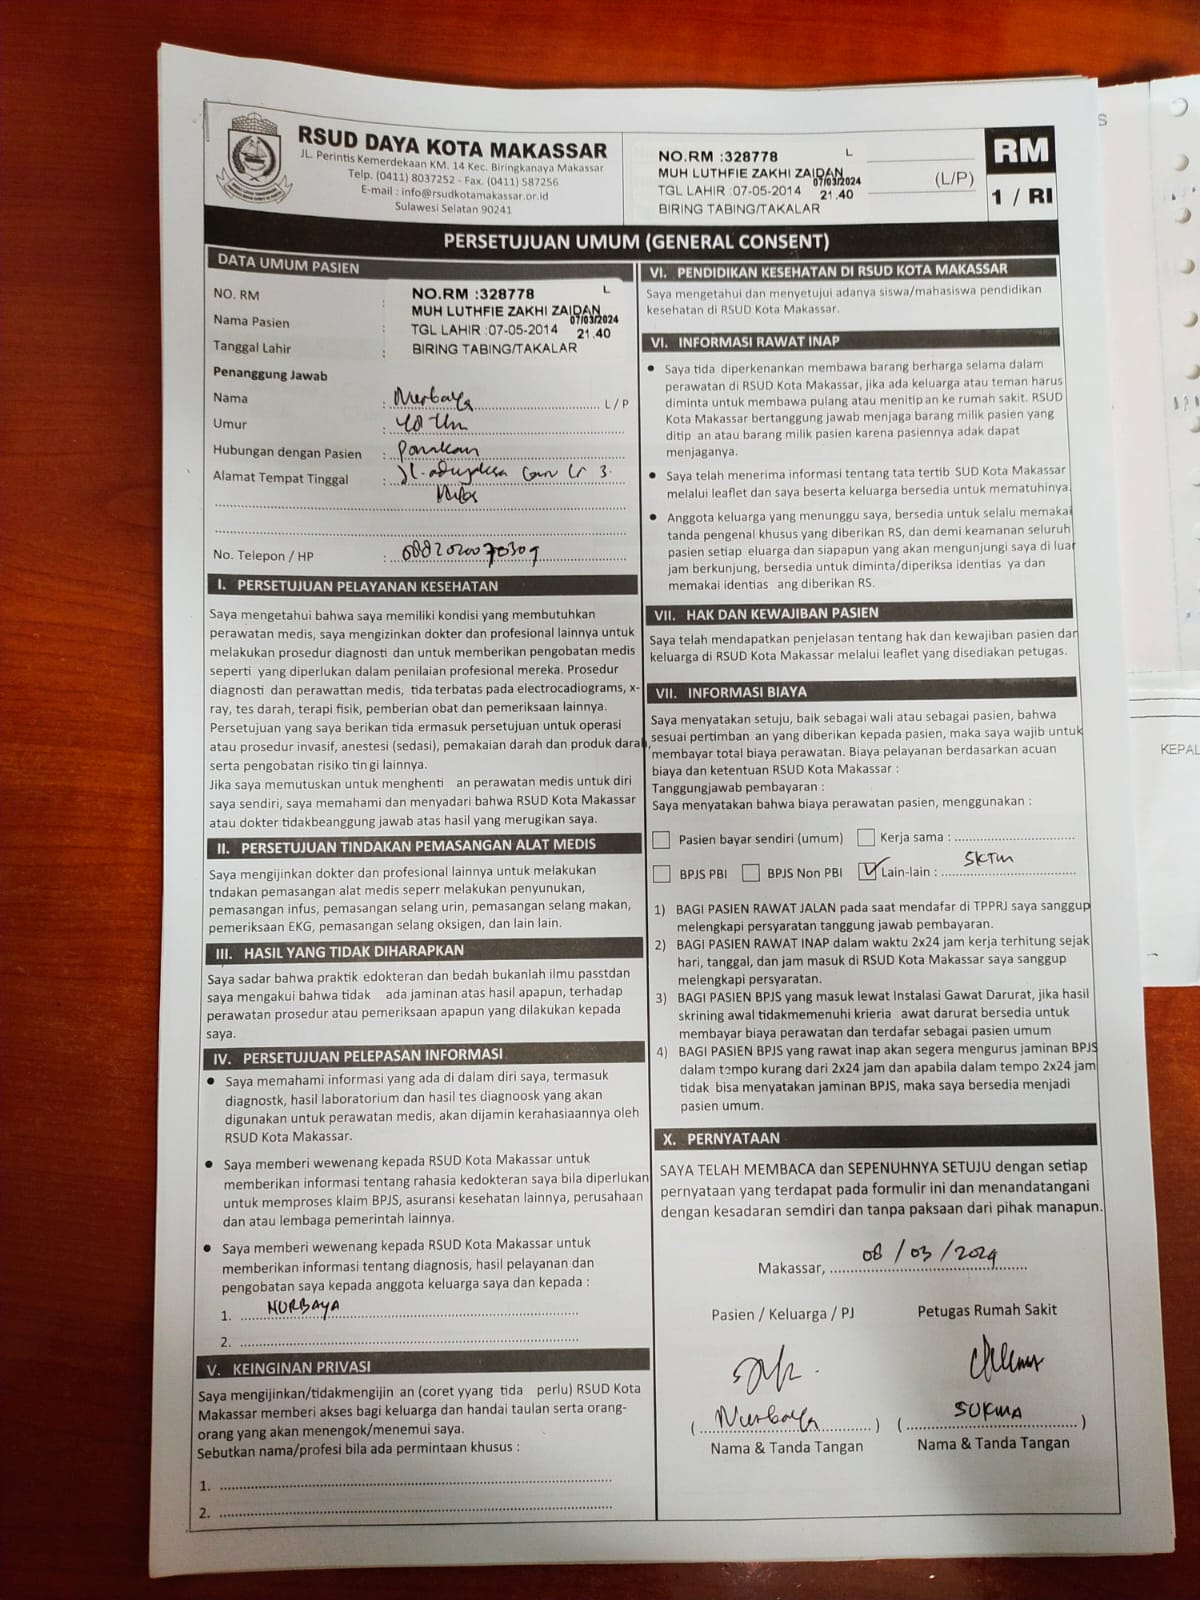 RSUD DAYA KOTA MAKASSAR
JL. Perintis Kemerdekaan KM. 14 Kec. Biringkanaya Makassar
Telp. (0411) 8037252 - Fax. (0411) 587256
E-mail : info@rsudkotamakassar.or.id
Sulawesi Selatan 90241
NO.RM :328778 L
MUH LUTHFIE ZAKHI ZAIDAN
07/03/2024
TGL LAHIR :07-05-2014 21.40
BIRING TABING/TAKALAR
(L/P)
RM
1 / RI
PERSETUJUAN UMUM (GENERAL CONSENT)
DATA UMUM PASIEN
NO. RM :
Nama Pasien
Tanggal Lahir :
NO.RM :328778 L
MUH LUTHFIE ZAKHI ZAIDAN
07/03/2024
TGL LAHIR :07-05-2014 21.40
BIRING TABING/TAKALAR
Penanggung Jawab
Nama : Nurbaya L / P
Umur :
Hubungan dengan Pasien :
Alamat Tempat Tinggal :
No. Telepon / HP :
I. PERSETUJUAN PELAYANAN KESEHATAN
Saya mengetahui bahwa saya memiliki kondisi yang membutuhkan
perawatan medis, saya mengizinkan dokter dan profesional lainnya untuk
melakukan prosedur diagnosti dan untuk memberikan pengobatan medis
seperti yang diperlukan dalam penilaian profesional mereka. Prosedur
diagnosti dan perawattan medis, tida terbatas pada electrocadiograms, x-
ray, tes darah, terapi fisik, pemberian obat dan pemeriksaan lainnya.
Persetujuan yang saya berikan tida ermasuk persetujuan untuk operasi
atau prosedur invasif, anestesi (sedasi), pemakaian darah dan produk darah,
serta pengobatan risiko tin gi lainnya.
Jika saya memutuskan untuk menghenti an perawatan medis untuk diri
saya sendiri, saya memahami dan menyadari bahwa RSUD Kota Makassar
atau dokter tidakbeanggung jawab atas hasil yang merugikan saya.
II. PERSETUJUAN TINDAKAN PEMASANGAN ALAT MEDIS
Saya mengijinkan dokter dan profesional lainnya untuk melakukan
tndakan pemasangan alat medis seperr melakukan penyunukan,
pemasangan infus, pemasangan selang urin, pemasangan selang makan,
pemeriksaan EKG, pemasangan selang oksigen, dan lain lain.
III. HASIL YANG TIDAK DIHARAPKAN
Saya sadar bahwa praktik edokteran dan bedah bukanlah ilmu passtdan
saya mengakui bahwa tidak ada jaminan atas hasil apapun, terhadap
perawatan prosedur atau pemeriksaan apapun yang dilakukan kepada
saya.
IV. PERSETUJUAN PELEPASAN INFORMASI
● Saya memahami informasi yang ada di dalam diri saya, termasuk
diagnostk, hasil laboratorium dan hasil tes diagnoosk yang akan
digunakan untuk perawatan medis, akan dijamin kerahasiaannya oleh
RSUD Kota Makassar.
● Saya memberi wewenang kepada RSUD Kota Makassar untuk
memberikan informasi tentang rahasia kedokteran saya bila diperlukan
untuk memproses klaim BPJS, asuransi kesehatan lainnya, perusahaan
dan atau lembaga pemerintah lainnya.
● Saya memberi wewenang kepada RSUD Kota Makassar untuk
memberikan informasi tentang diagnosis, hasil pelayanan dan
pengobatan saya kepada anggota keluarga saya dan kepada :
1. NURBAYA
2.
V. KEINGINAN PRIVASI
Saya mengijinkan/tidakmengijin an (coret yyang tida perlu) RSUD Kota
Makassar memberi akses bagi keluarga dan handai taulan serta orang-
orang yang akan menengok/menemui saya.
Sebutkan nama/profesi bila ada permintaan khusus :
1.
2.
VI. PENDIDIKAN KESEHATAN DI RSUD KOTA MAKASSAR
Saya mengetahui dan menyetujui adanya siswa/mahasiswa pendidikan
kesehatan di RSUD Kota Makassar.
VI. INFORMASI RAWAT INAP
● Saya tida diperkenankan membawa barang berharga selama dalam
perawatan di RSUD Kota Makassar, jika ada keluarga atau teman harus
diminta untuk membawa pulang atau menitip an ke rumah sakit. RSUD
Kota Makassar bertanggung jawab menjaga barang milik pasien yang
ditip an atau barang milik pasien karena pasiennya adak dapat
menjaganya.
● Saya telah menerima informasi tentang tata tertib SUD Kota Makassar
melalui leaflet dan saya beserta keluarga bersedia untuk mematuhinya.
● Anggota keluarga yang menunggu saya, bersedia untuk selalu memakai
tanda pengenal khusus yang diberikan RS, dan demi keamanan seluruh
pasien setiap eluarga dan siapapun yang akan mengunjungi saya di luar
jam berkunjung, bersedia untuk diminta/diperiksa identias ya dan
memakai identias ang diberikan RS.
VII. HAK DAN KEWAJIBAN PASIEN
Saya telah mendapatkan penjelasan tentang hak dan kewajiban pasien dan
keluarga di RSUD Kota Makassar melalui leaflet yang disediakan petugas.
VII. INFORMASI BIAYA
Saya menyatakan setuju, baik sebagai wali atau sebagai pasien, bahwa
sesuai pertimban an yang diberikan kepada pasien, maka saya wajib untuk
membayar total biaya perawatan. Biaya pelayanan berdasarkan acuan
biaya dan ketentuan RSUD Kota Makassar :
Tanggungjawab pembayaran :
Saya menyatakan bahwa biaya perawatan pasien, menggunakan :
Pasien bayar sendiri (umum) Kerja sama :
BPJS PBI BPJS Non PBI Lain-lain : SKTM
1) BAGI PASIEN RAWAT JALAN pada saat mendafar di TPPRJ saya sanggup
melengkapi persyaratan tanggung jawab pembayaran.
2) BAGI PASIEN RAWAT INAP dalam waktu 2x24 jam kerja terhitung sejak
hari, tanggal, dan jam masuk di RSUD Kota Makassar saya sanggup
melengkapi persyaratan.
3) BAGI PASIEN BPJS yang masuk lewat Instalasi Gawat Darurat, jika hasil
skrining awal tidakmemenuhi krieria awat darurat bersedia untuk
membayar biaya perawatan dan terdafar sebagai pasien umum
4) BAGI PASIEN BPJS yang rawat inap akan segera mengurus jaminan BPJS
dalam tempo kurang dari 2x24 jam dan apabila dalam tempo 2x24 jam
tidak bisa menyatakan jaminan BPJS, maka saya bersedia menjadi
pasien umum.
X. PERNYATAAN
SAYA TELAH MEMBACA dan SEPENUHNYA SETUJU dengan setiap
pernyataan yang terdapat pada formulir ini dan menandatangani
dengan kesadaran semdiri dan tanpa paksaan dari pihak manapun.
Makassar, 08/03/2024
Pasien / Keluarga / PJ Petugas Rumah Sakit
( Nurbaya ) ( SUKMA )
Nama & Tanda Tangan Nama & Tanda Tangan
S
KEPAL